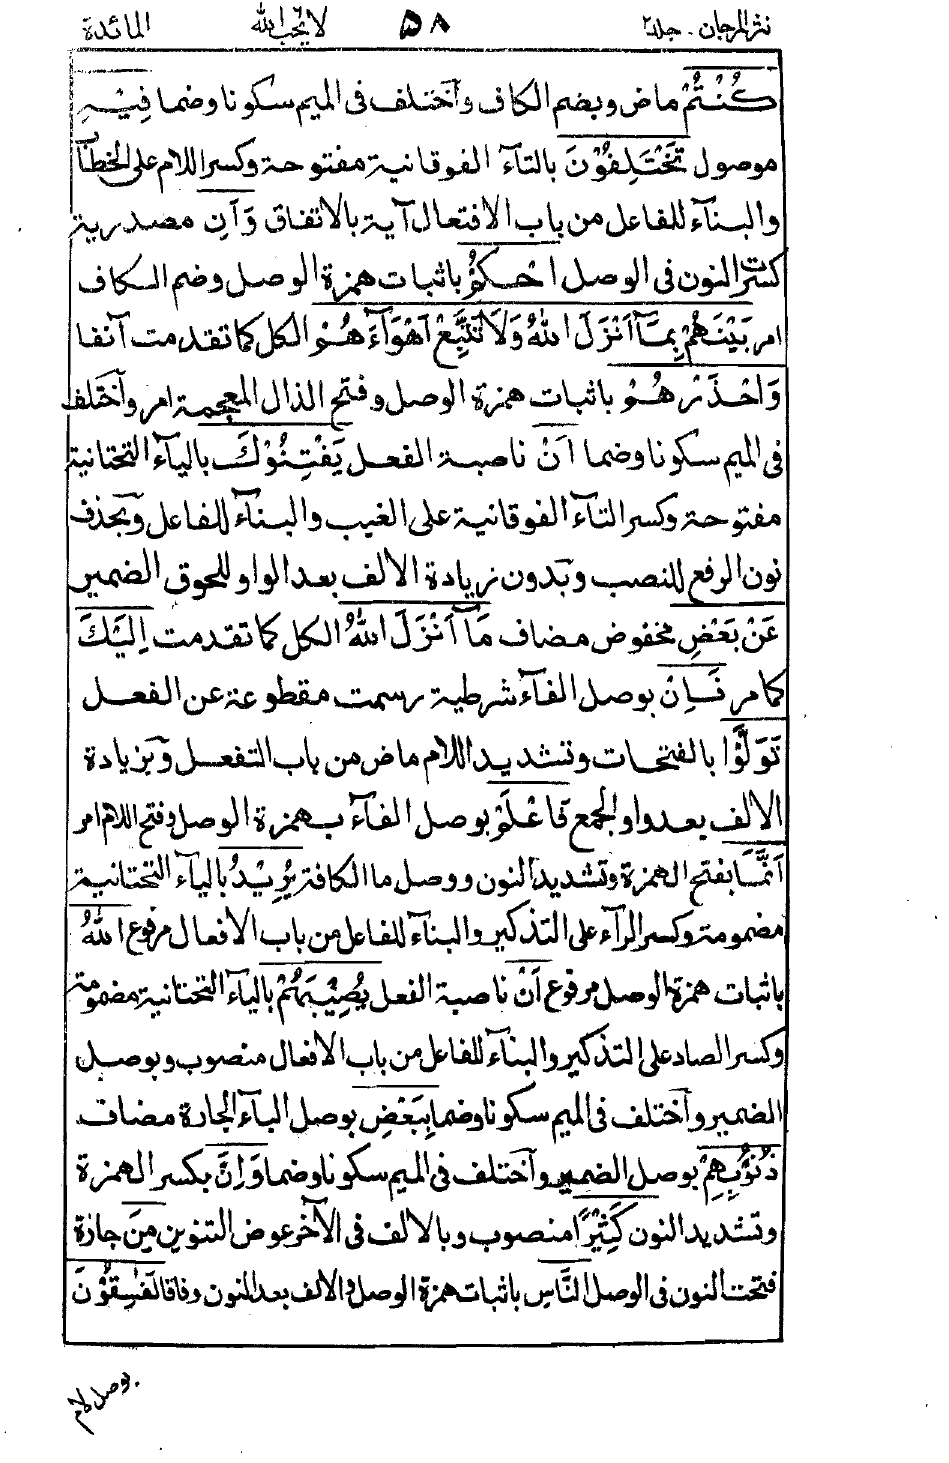 نثر المرجان - جلد۲ ۵۸ لا یحب الله ٦ المائدة
كُنْتُمْ ماض وبضم الكاف وآختلف فى الميم سكونا وضما فِيْهِ
موصول تَخْتَلِفُوْنَ بالتآء الفوقانية مفتوحة وكسر اللام على الخطاب
والبنآء للفاعل من باب الافتعال آية بالاتفاق وَاَنِ مصدرية
كسرت النون فى الوصل احْكُمْ باثبات همزة الوصل وضم الكاف
امر بَيْنَهُمْ بِمَآ اَنْزَلَ اللهُ وَلَا تَتَّبِعْ اَهْوَآءَهُمْ الكل كما تقدمت آنفا
وَاحْذَرْهُمْ باثبات همزة الوصل وفتح الذال المعجمة امر وآختلف
فى الميم سكونا وضما اَنْ ناصبة الفعل يَفْتِنُوْكَ باليآء التحتانية
مفتوحة وكسر التآء الفوقانية على الغيب والبنآء للفاعل وبحذف
نون الرفع للنصب وبدون زيادة الالف بعد الواو للحوق الضمير
عَنْ بَعْضِ مخفوض مضاف مَآ اَنْزَلَ اللهُ الكل كما تقدمت اِلَيْكَ
كما مر فَاِنْ بوصل الفآء شرطية رسمت مقطوعة عن الفعل
تَوَلَّوْا بالفتحات وتشديد اللام ماض من باب التفعل وبزيادة
الالف بعد واو الجمع فَاعْلَمْ بوصل الفآء بهمزة الوصل وفتح اللام امر
اَنَّمَا بفتح الهمزة وتشديد النون ووصل ما الكافة يُرِيْدُ باليآء التحتانية
مضمومة وكسر الرآء على التذكير والبنآء للفاعل من باب الافعال مرفوع اللهُ
باثبات همزة الوصل مرفوع اَنْ ناصبة الفعل يُصِيْبَهُمْ باليآء التحتانية مضمومة
وكسر الصاد على التذكير والبنآء للفاعل من باب الافعال منصوب وبوصل
الضمير وآختلف فى الميم سكونا وضما بِبَعْضِ بوصل البآء الجارة مضاف
ذُنُوْبِهِمْ بوصل الضمير وآختلف فى الميم سكونا وضما وَاِنَّ بكسر الهمزة
وتشديد النون كَثِيْرًا منصوب وبالالف فى الآخر عوض التنوين مِنَ جارة
فتحت النون فى الوصل النَّاسِ باثبات همزة الوصل والالف بعد النون وفاقا لَفٰسِقُوْنَ
بوصل لام